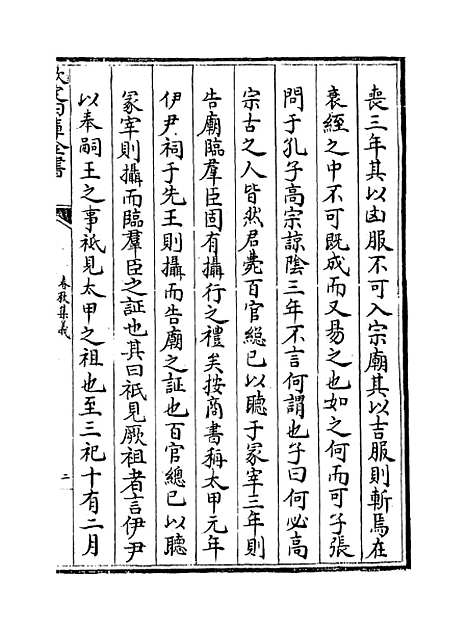 喪三年其以凶服不可入宗廟其以吉服則斬焉在
衰絰之中不可既成而又易之也如之何而可子張
問于孔子高宗諒陰三年不言何謂也子曰何必高
宗古之人皆然君薨百官總已以聽于冢宰三年則
告廟臨羣臣固有攝行之禮矣按商書稱太甲元年
伊尹祠于先王則攝而告廟之証也百官總已以聽
冢宰則攝而臨羣臣之証也其曰祗見厥祖者言伊尹
以奉嗣王之事祗見太甲之祖也至三祀十有二月
欽定四庫全書
春秋集義
二